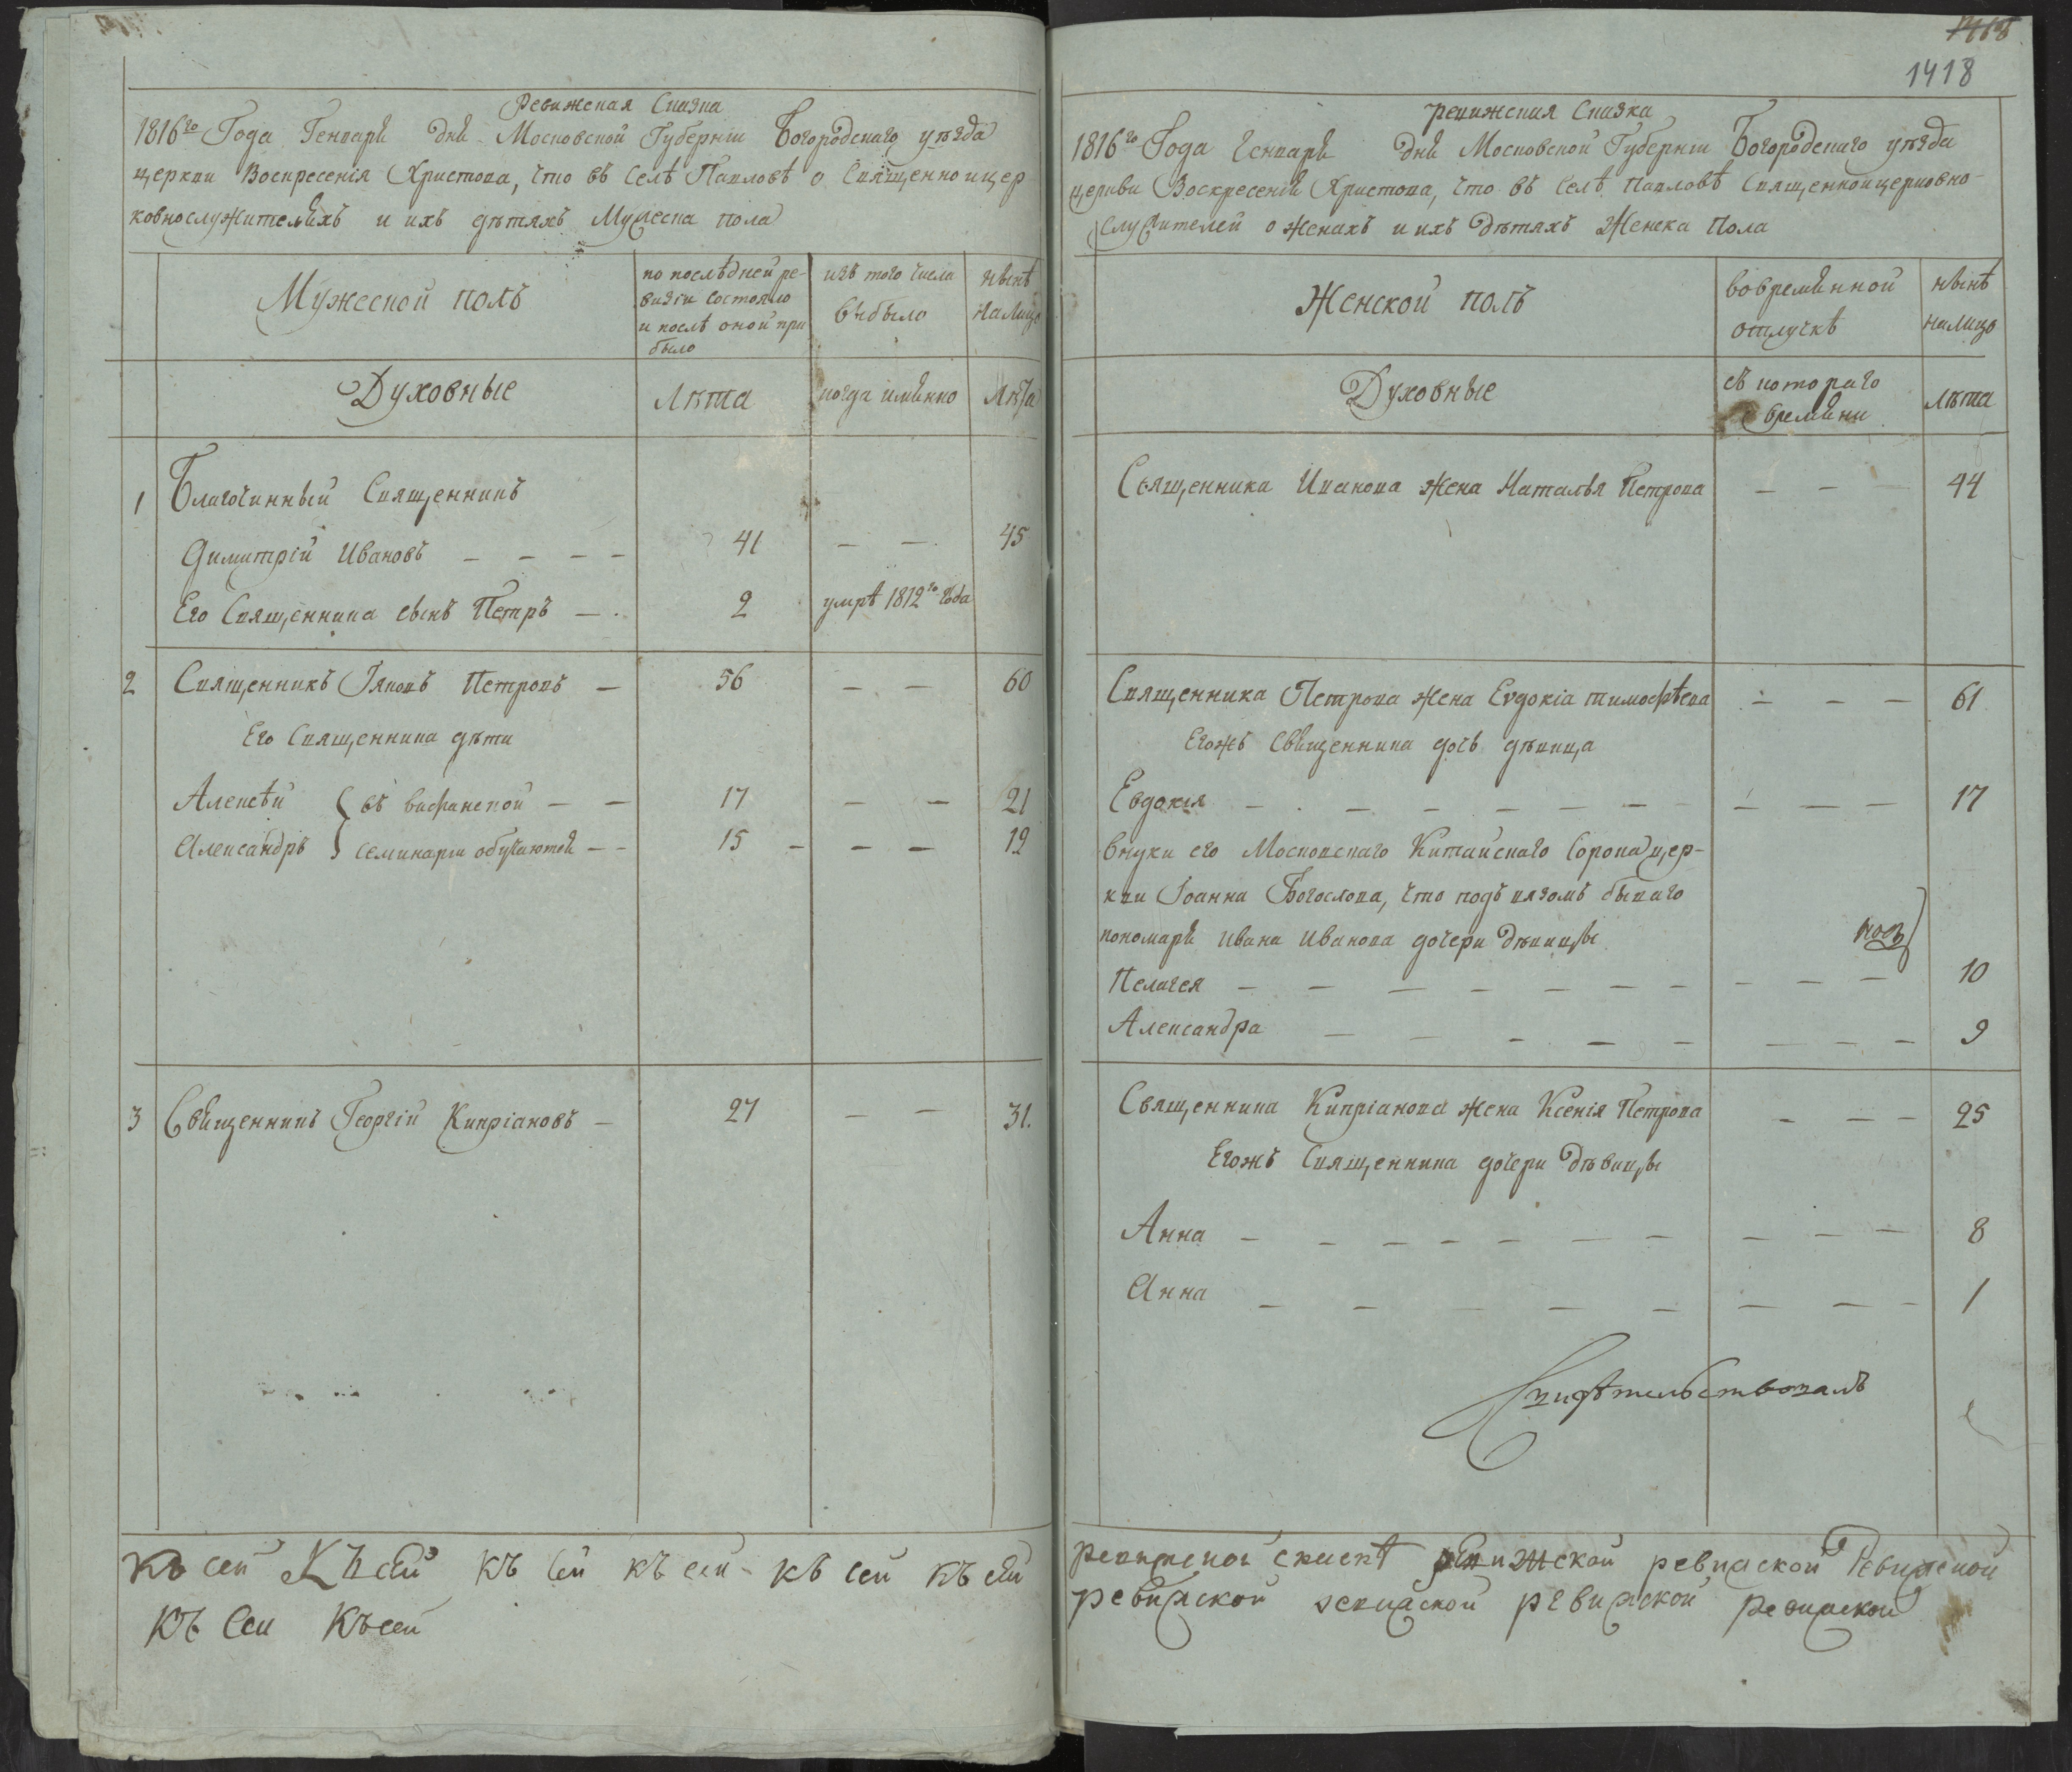 Ревижская Сказка
1816го Года Генваря дня Московской Губернiи Богородскаго уѣзда
церкви Воскресенiя Христова, что въ селѣ Павловѣ о Священноицер
ковнослужителяхъ и ихъ дѣтяхъ Мужеска пола
Мужеской полъ
по послѣдней ре-
визiи состояло
и послѣ оной при
было
изъ того числа
выбыло
нынѣ
налицо
Духовные
Лѣта
когда имянно
Лѣта
1 Благочинный Священникъ
Димитрiй Ивановъ — — — — 41 — — 45
Его Священника сынъ Петръ — 2 умре 1812го года
2 Священникъ Iяковъ Петровъ — 56 — — 60
Его Священника дѣти
Алексѣй въ вифанской — — 17 — — 21
Александръ семинарiи обучаются — — 15 — — — 19
3 Священникъ Георгiй Кипрiановъ — 27 — — 31.
къ сей Къ сей къ сей къ сей къ сей къ сей
къ сей къ сей
1418
Ревижская Сказка
1816го Года Генваря дня Московской Губернiи Богородскаго уѣзда
церкви Воскресенiя Христова, что въ селѣ Павловѣ Священноицерковно-
служителей о женахъ и ихъ дѣтяхъ Женска Пола
Женской полъ
вовремянной
отлучкѣ
нынѣ
налицо
Духовные
съ котораго
времяни
лѣта
Священника Иванова жена Наталья Петрова — — — 44
Священника Петрова жена Евдокiа тимофѣева — — — 61
Егожъ священника дочь дѣвица
Евдокiя — — — — — — — — — — 17
внуки его Московскаго Китайскаго Сорока цер-
кви Iоанна Богослова, что подъ вязомъ бываго
пономаря Ивана Иванова дочери дѣвицы
Пелагея — — — — — — — — — — 10
Александра — — — — — — — — 9
Священника Кипрiанова жена Ксенiя Петрова — — — 25
Егожъ Священника дочери дѣвицы
Анна — — — — — — — — — — 8
Анна — — — — — — — — 1
Свидѣтельствовалъ
ревижской скаскѣ ревижской ревижской Ревижской
ревижской ревижской ревижской ревижской